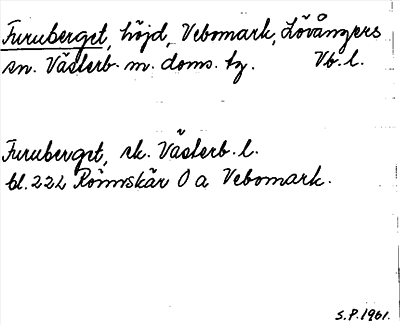 Furuberget, höjd, Vebomark, Lövångers
sn. Västerb. m. doms. tg. Vb. l.
Furuberget, sk. Västerb. l.
bl. 222 Rönnskär O a Vebomark.
S.P. 1961.